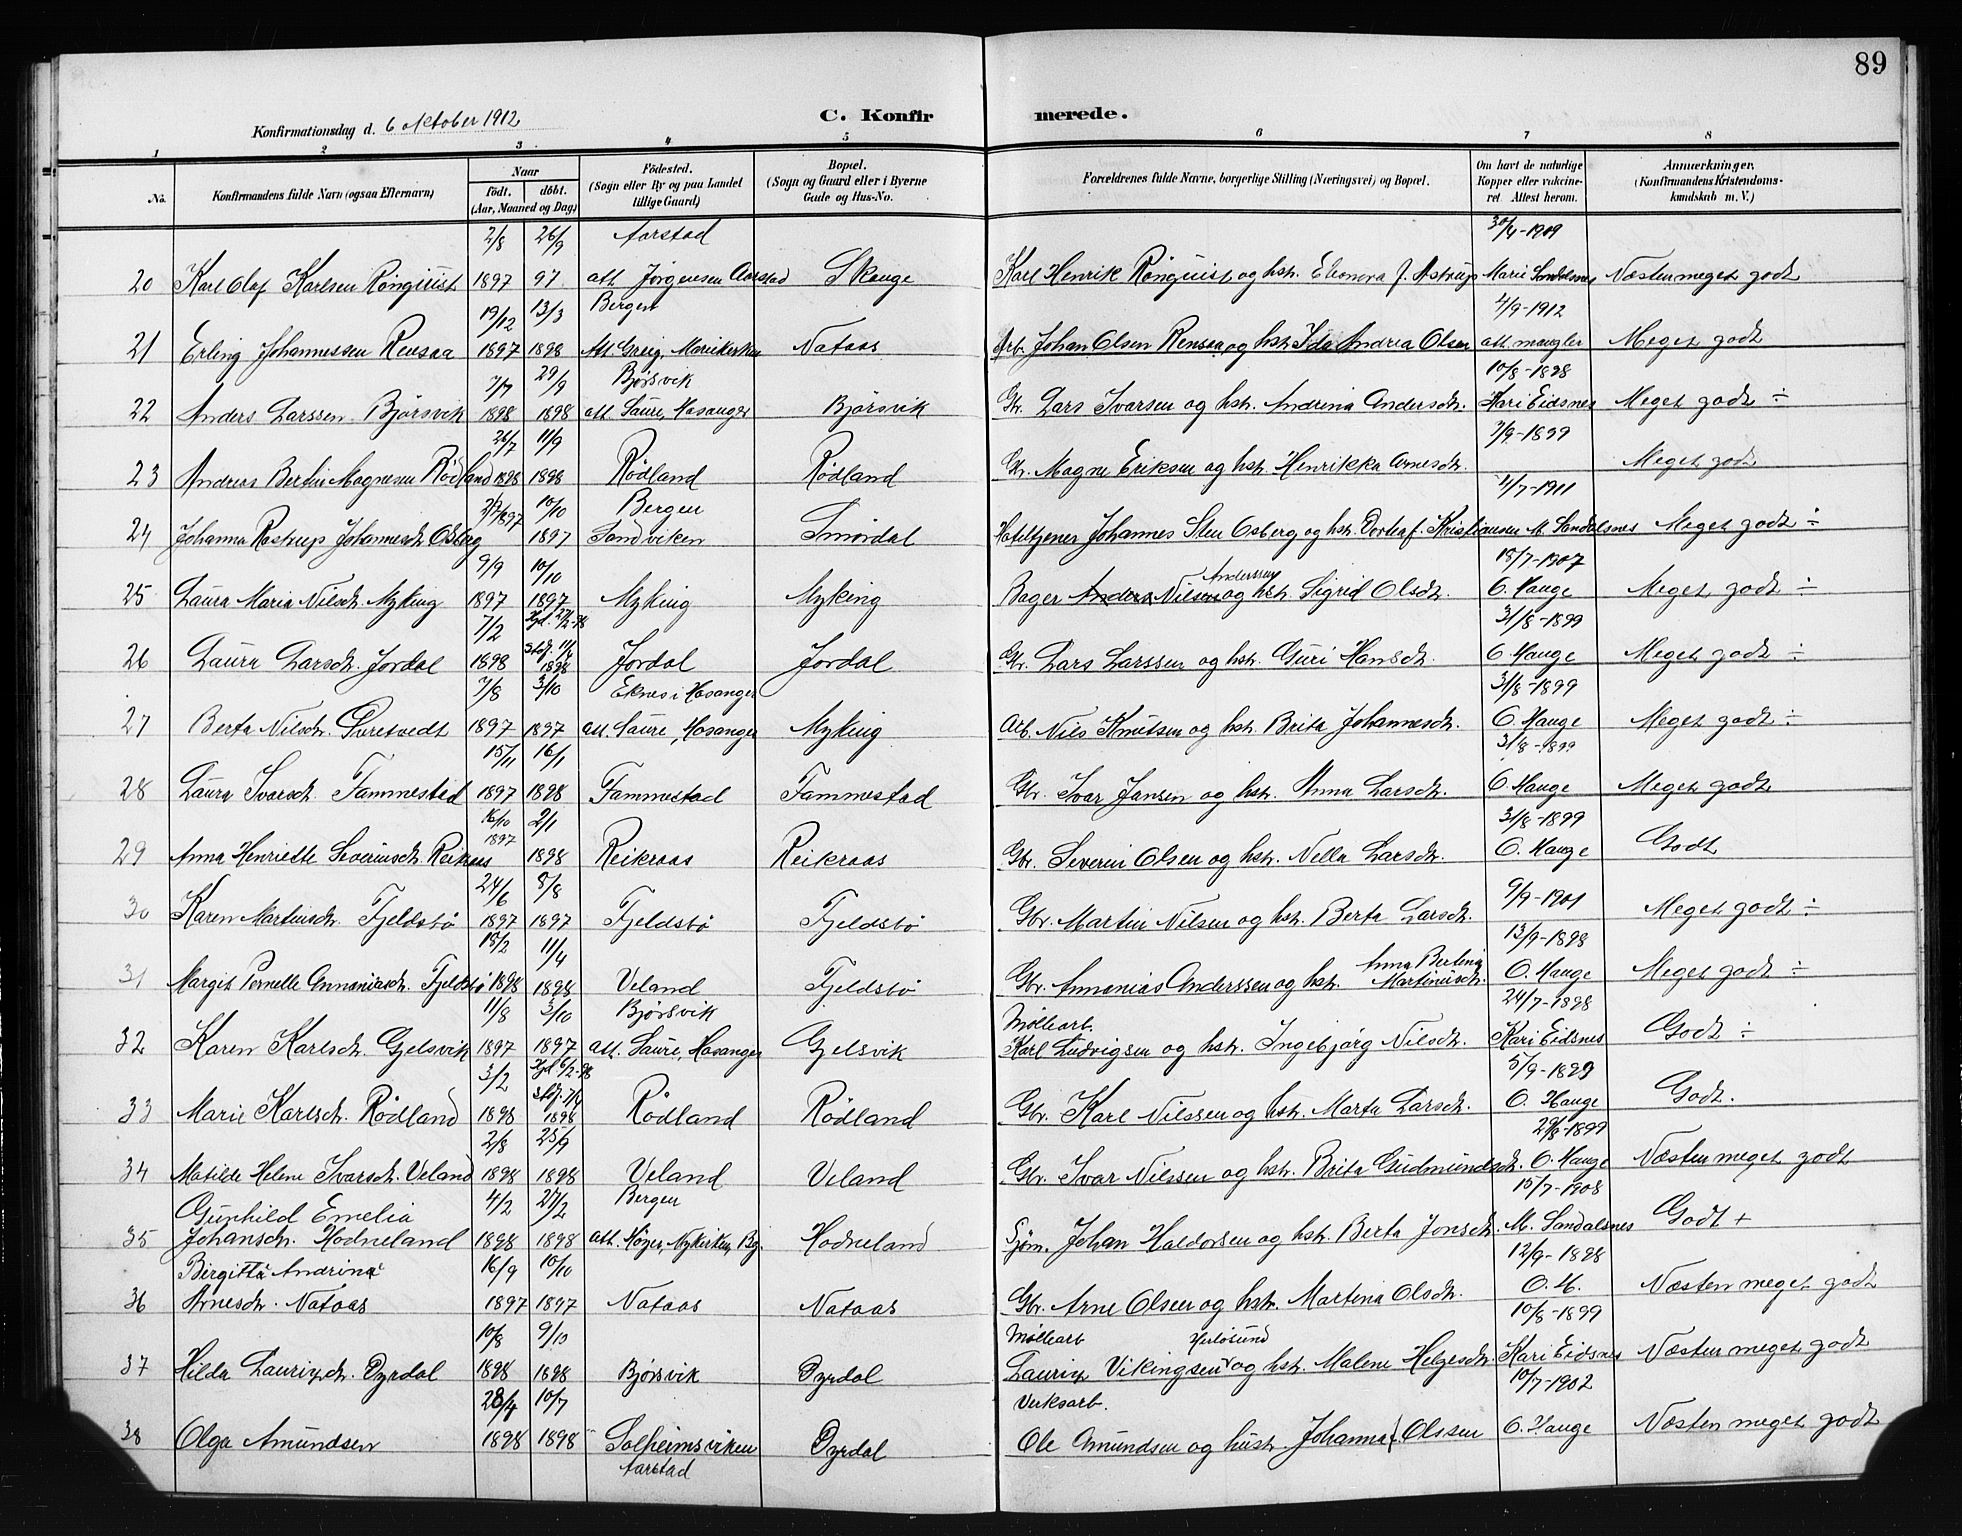 89
Konfirmationsdag d. 6 oktober 1912
C. Konfirmerede.
1 2 3 4 5 6 7 8
No.
Konfirmandens fulde Navn (ogsaa Efternavn)
Naar
födt. döbt.
(Aar, Maaned og Dag)
Födested.
(Sogn eller By og paa Landet
tillige Gaard)
Bopæl.
(Sogn og Gaard eller i Byerne
Gade og Hus-No.
Forældrenes fulde Navne, borgerlige Stilling (Næringsvei) og Bopæl.
Om havt de naturlige
Kopper eller vakcine-
ret. Attest herom.
Anmærkninger.
(Konfirmandens Kristendoms-
kundskab m. V.)
2/8 26/9 Aarstad 30/4-1909
20 Karl Olaf Karlsen Rönquist 1897 97 att. Jörgensen Aarstad Skauge Karl Henrik Rönquist og hstr. Eleonora f. Astrup Marie Sandalsnes Næsten meget godt
19/12 13/3 Bergen 4/9-1912
21 Erling Johannessen Rensaa 1897 1898 Att. Greig, Mariekirken Nataas Arb. Johan Olsen Rensaa og hstr. Ida Andrea Olsen att. mangler Meget godt
7/7 29/9 Bjørsvik 10/8-1898
22 Anders Larssen Bjørsvik 1898 1898 att. Saure, Hosanger Bjørsvik Gbr. Lars Ivarsen og hstr. Andrina Andersdtr. Kari Eidsnes Meget godt ÷
26/7 11/9 7/9-1899
23 Andreas Bertin Magnesen Rödland 1898 1898 Rödland Rödland Gbr. Magne Eriksen og hstr. Henrikka Arnesdtr. Meget godt
1897 10/10 Bergen 4/7-1911
24 Johanna Rostrup Johannesdtr. Osberg 1897 Sandviken Smørdal Hoteltjener Johannes Sten Osberg og hstr. Dortea f. Kristiansen M. Sandalsnes Meget godt ÷
9/9 10/10 18/7-1907
25 Laura Maria Nilsdtr. Myking 1897 1897 Myking Myking Bager Anders Nilsen Anderssen og hstr. Sigrid Olsdtr. O. Hauge Meget godt ÷
7/2 31/8-1899
26 Laura Larsdtr. Jordal 1898 1898 Jordal Jordal Gbr. Lars Larssen og hstr. Guri Hansdtr. O. Hauge Meget godt ÷
7/8 3/10 Eknes i Hosanger 31/8-1899
27 Berta Nilsdtr. Svretvedt 1897 1897 att. Saure, Hosanger Myking Arb. Nils Knutsen og hstr. Brita Johannesdtr. O. Hauge Meget godt ÷
15/11 16/1 31/8-1899
28 Laura Ivarsdtr. Fammestad 1897 1898 Fammestad Fammestad Gbr. Ivar Jansen og hstr. Anna Larsdtr. O. Hauge Meget godt
16/10 2/1 31/8-1899
29 Anna Henriette Severinsdtr. Reikraas 1897 1898 Reikraas Reikraas Gbr. Severin Olsen og hstr. Nella Larsdtr. O. Hauge Godt
24/6 8/8 9/9-1901
30 Karen Martinsdtr. Fjeldsbö 1897 1897 Fjeldsbö Fjeldsbö Gbr. Martin Nilsen og hstr. Berta Larsdtr. Meget godt ÷
18/2 11/4 13/9-1898
31 Margit Pernelle Annaniasdtr. Fjeldsbö 1898 1898 Veland Fjeldsbö Gbr. Annanias Anderssen og hstr. Anna Bertina Martinusdtr. O. Hauge Meget godt ÷
11/8 3/10 Bjørsvik Möllearb. 24/7-1898
32 Karen Karlsdtr. Gjelsvik 1897 1897 att. Saure, Hosanger Gjelsvik Karl Ludvigsen og hstr. Ingebjørg Nilsdtr. Kari Eidsnes Godt ÷
3/2 5/9-1899
33 Marie Karlsdtr. Rödland 1898 1898 Rödland Rödland Gbr. Karl Nilssen og hstr. Marta Larsdtr. O. Hauge Godt.
2/8 25/9 29/8-1899
34 Matilde Helene Ivarsdtr. Veland 1898 1898 Veland Veland Gbr. Ivar Nilssen og hstr. Brita Gudmundsdtr. O. Hauge Næsten meget godt
Gunhild Emelia 4/2 27/2 Bergen 15/7-1908
35 Johansdtr. Hodneland 1898 1898 att. Höyer, Nykirken, Bg. Hodneland Sjöm. Johan Haldorsen og hstr. Berta Jonsdtr. M. Sandalsnes Godt +
Birgitta Andrina 16/9 10/10 12/9-1898
36 Arnesdtr. Nataas 1897 1897 Nataas Nataas Gbr. Arne Olsen og hstr. Martina Olsdtr. O. H. Næsten meget godt
10/8 9/10 Möllearb Herløsund 10/8-1899
37 Hilda Lauritzdtr. Dyrdal 1898 1898 Bjørsvik Dyrdal Lauritz Vikingsen og hstr. Malene Helgesdtr. Kari Eidsnes Næsten meget godt
28/4 10/7 Verksarb. 10/7-1902
38 Olga Amundsen 1898 1898 Solheimsviken Dyrdal Ole Amundsen og hustr. Johanna f. Olssen O. Hauge Næsten meget godt
Aarstad